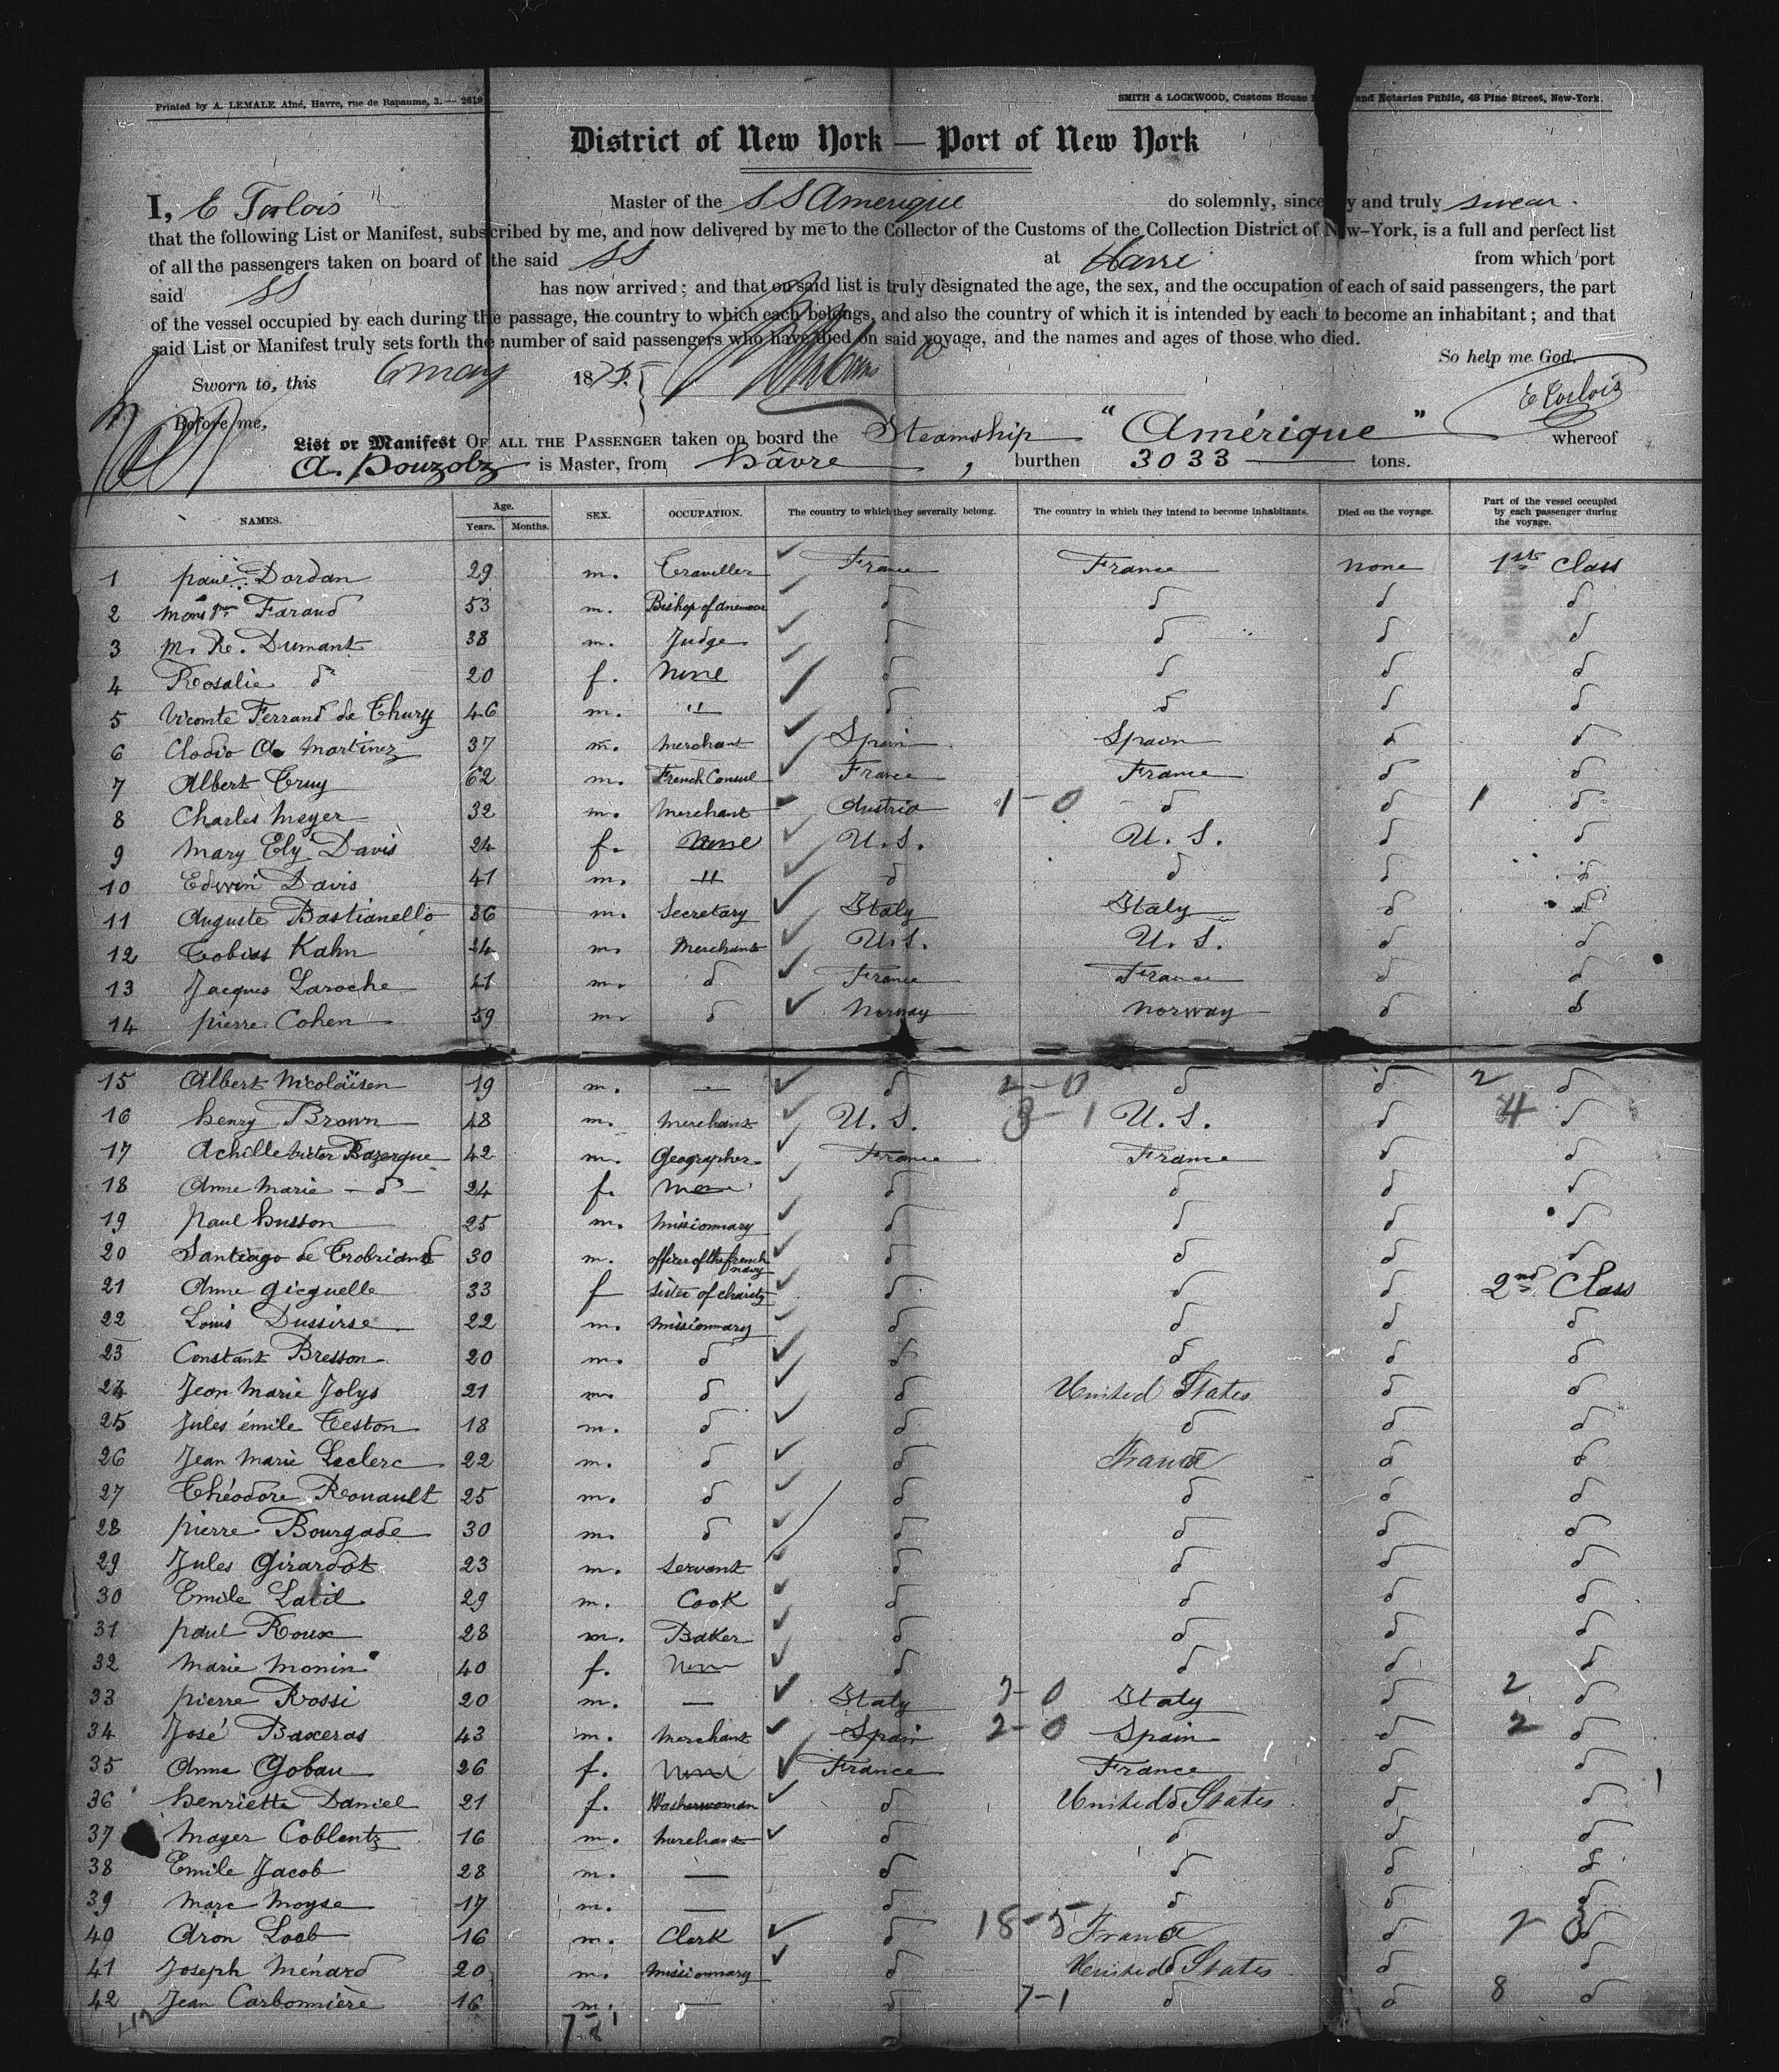 Printed by A. LEMALE Aîné, Havre, rue de Bapaume, 3. — 2619
SMITH & LOCKWOOD, Custom House and Notaries Public, 48 Pine Street, New-York.
District of New York — Port of New York
I, E Joslois Master of the SS Amerique do solemnly, sincerely and truly swear.
that the following List or Manifest, subscribed by me, and now delivered by me to the Collector of the Customs of the Collection District of New-York, is a full and perfect list
of all the passengers taken on board of the said SS at Havre from which port
said SS has now arrived; and that on said list is truly designated the age, the sex, and the occupation of each of said passengers, the part
of the vessel occupied by each during the passage, the country to which each belongs, and also the country of which it is intended by each to become an inhabitant; and that
said List or Manifest truly sets forth the number of said passengers who have died on said voyage, and the names and ages of those who died.
So help me God.
Sworn to, this 6 may 1875.
Before me,
List or Manifest OF ALL THE PASSENGER taken on board the Steamship "Amérique" whereof
A. Pouzolz is Master, from hâvre, burthen 3033 tons.
NAMES. Age. Years. Months. SEX. OCCUPATION. The country to which they severally belong. The country in which they intend to become inhabitants. Died on the voyage. Part of the vessel occupied by each passenger during the voyage.
1 paul Dordan 29 m. Traveller France France none 1st Class
2 Faraud 53 m. Bishop of d d d d
3 M. Re. Dumant 38 m. Judge d d d d
4 Rosalie d° 20 f. None d d d d
5 Vicomte Ferrand de Thury 46 m. " d d d d
6 Clodio A. Martinez 37 m. merchant Spain Spain d d
7 Albert Truy 62 m. French Consul France France d d
8 Charles Meyer 32 m. merchant Austria 1-0 d d 1 d
9 Mary Ely Davis 24 f. None U.S. U.S. d d
10 Edwin Davis 41 m. " d d d d
11 Auguste Bastianello 36 m. Secretary Italy Italy d d
12 Tobias Kahn 24 m. Merchant U.S. U.S. d d
13 Jacques Laroche 41 m. d France France d d
14 pierre Cohen 59 m. d Norway Norway d d
15 Albert Nicolaïsen 19 m. — d 2-0 d d 2 d
16 henry Brown 48 m. merchant U.S. 3-1 U.S. d 4 d
17 Achille victor Bazerque 42 m. Geographer France France d d
18 Anne Marie — d° — 24 f. None d d d d
19 paul husson 25 m. missionnary d d d d
20 Santiago de Trobriand 30 m. officer of the french navy d d d d
21 Anne gicquelle 33 f sister of charity d d d 2nd Class
22 Louis Dussirse 22 m. missionnary d d d d
23 Constant Bresson 20 m. d d d d d
24 Jean Marie Jolys 21 m. d d United States d d
25 Jules émile Teston 18 m. d d d d d
26 Jean Marie Leclerc 22 m. d d France d d
27 Théodore Rouault 25 m. d d d d d
28 pierre Bourgade 30 m. d d d d d
29 Jules Girardot 23 m. servant d d d d
30 Emile Latil 29 m. Cook d d d d
31 paul Roux 28 m. Baker d d d d
32 Marie Monin 40 f. None d d d d
33 pierre Rossi 20 m. — Italy 2-0 Italy d 2 d
34 José Baxeras 43 m. merchant Spain 2-0 Spain d 2 d
35 Anna Gobau 26 f. None France France d d
36 henriette Daniel 21 f. Washerwoman d United States d d
37 Mayer Coblentz 16 m. merchant d d d d
38 Emile Jacob 28 m. — d d d d
39 Marc Moyse 17 m. — d d d d
40 Aron Loeb 16 m. Clerk d 18-5 France d d
41 Joseph Ménard 20 m. missionnary d United States d d
42 Jean Carbonnière 16 m. — d 7-1 d d 8 d